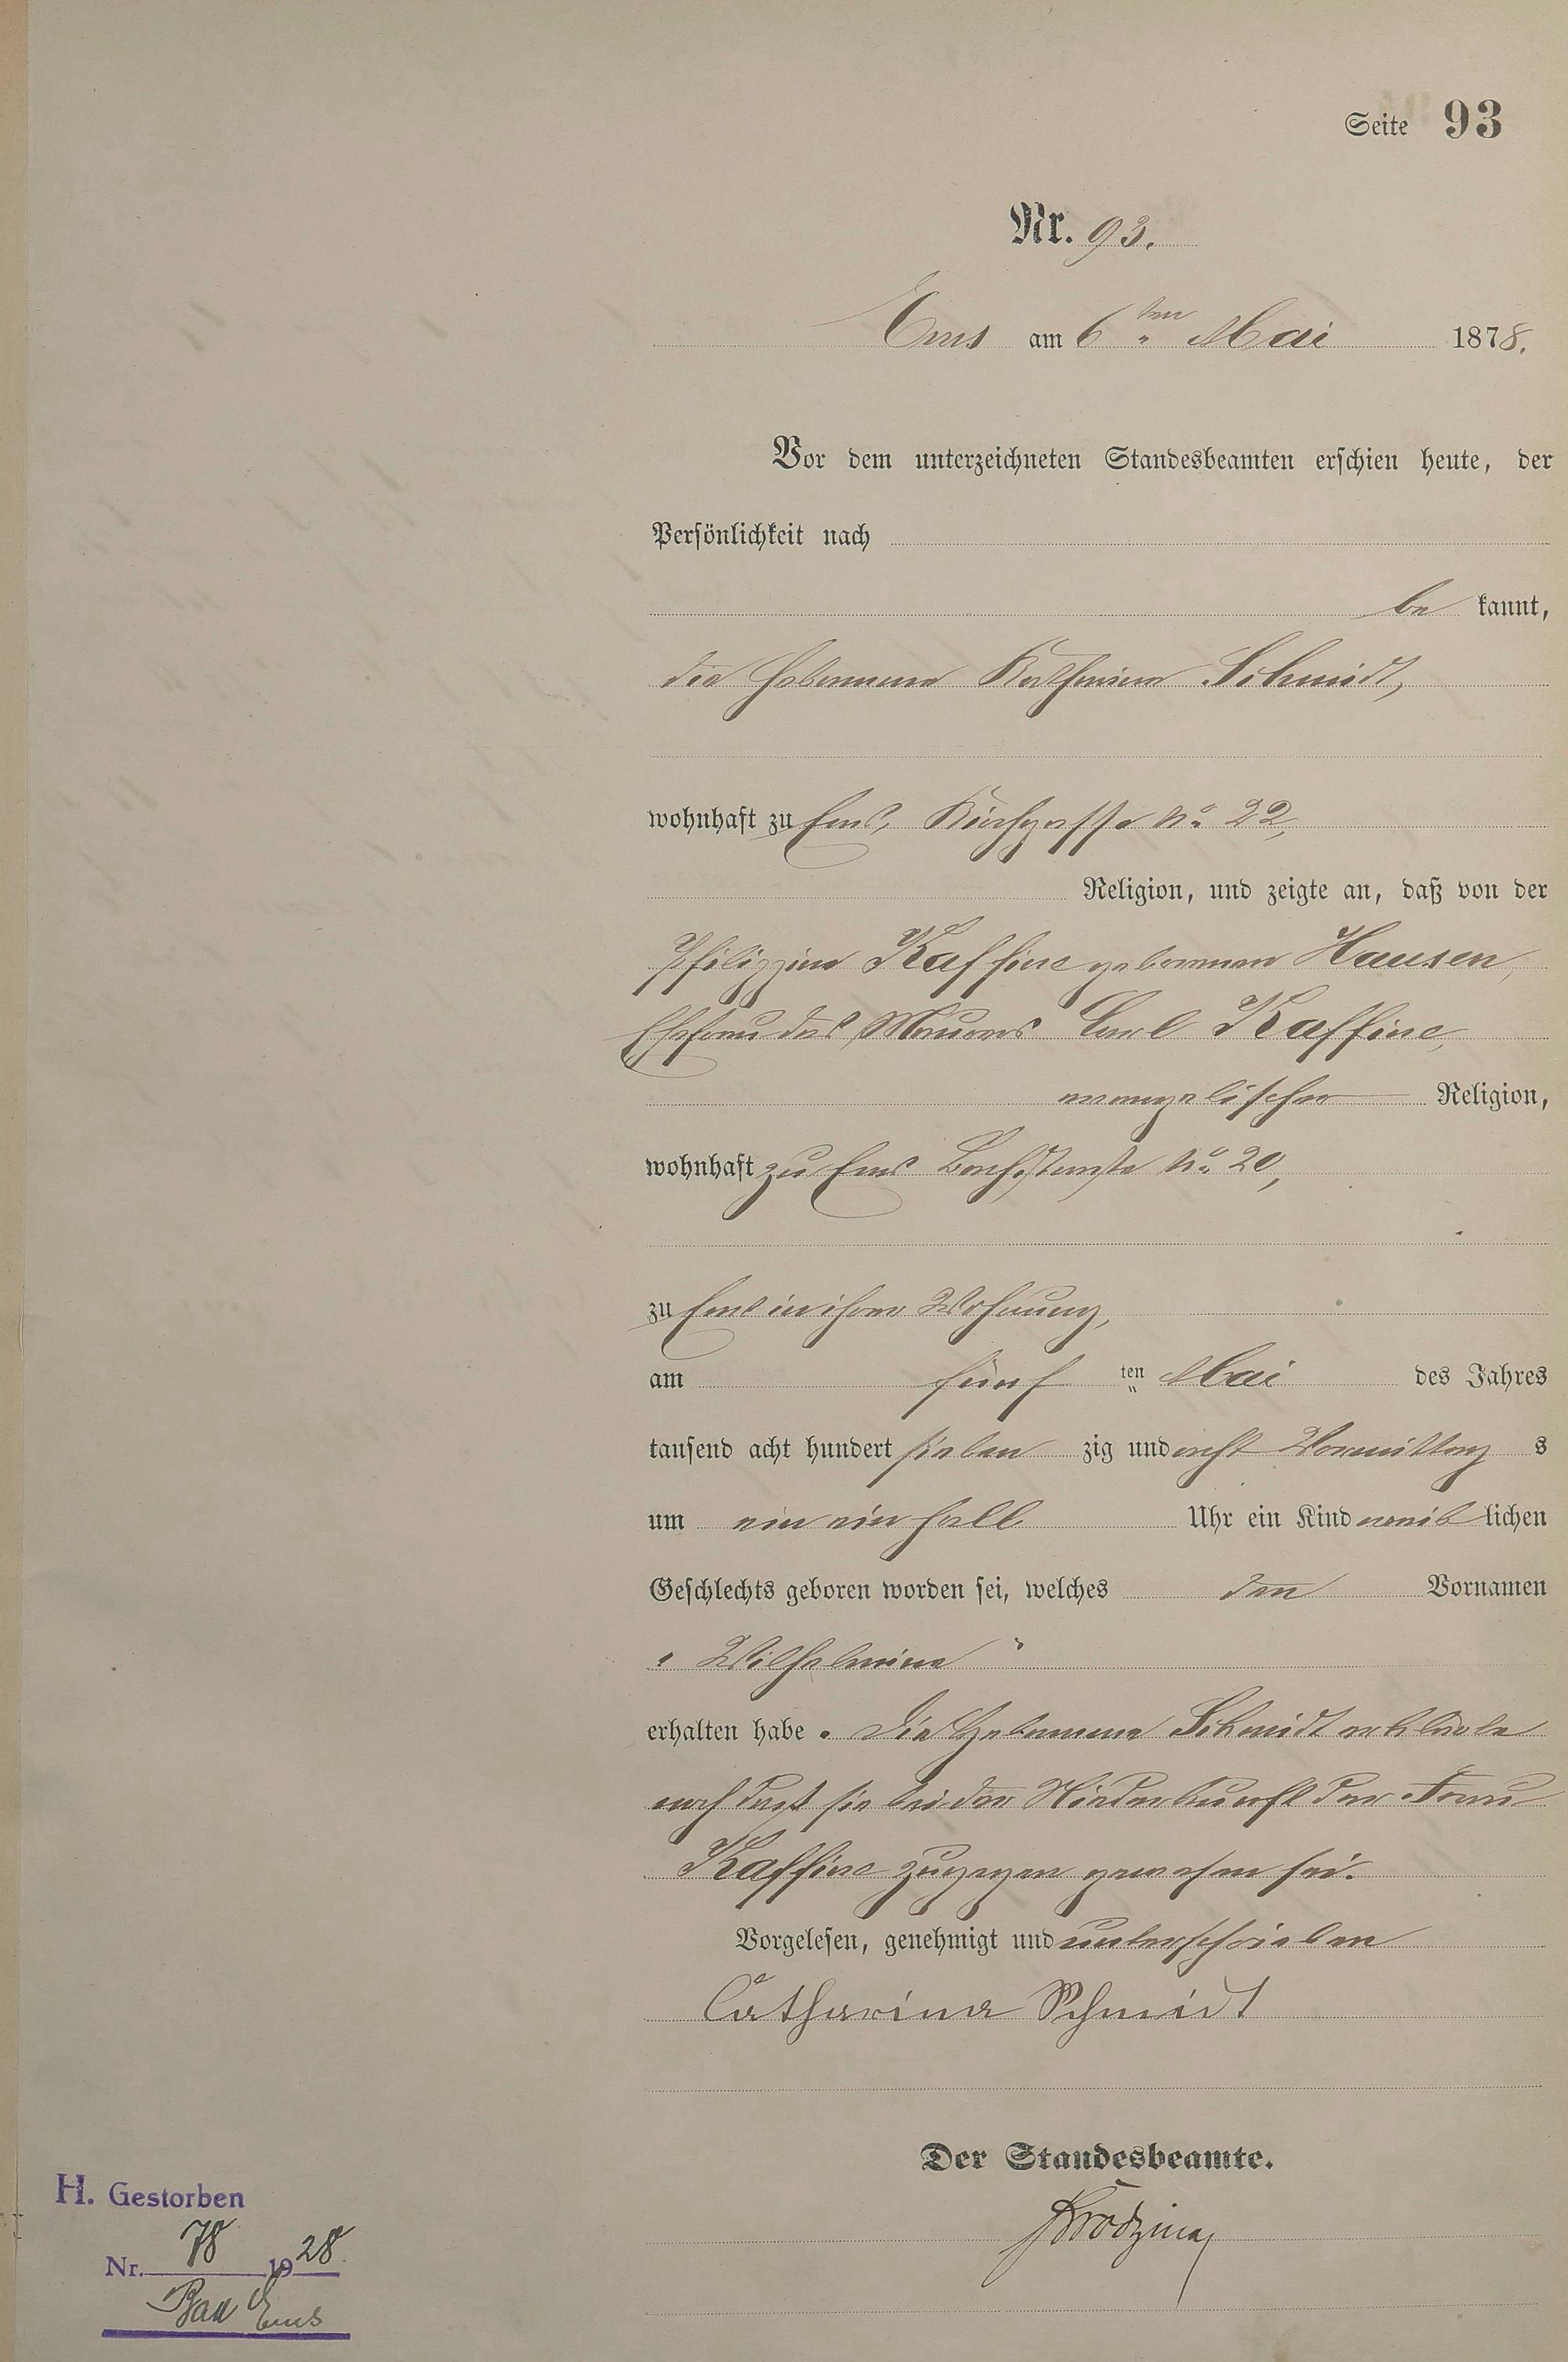 Seite 93
Nr. 93.
Ems am 6ten Mai 1878.
Vor dem unterzeichneten Standesbeamten erschien heute, der
Persönlichkeit nach
be kannt,
die Hebamme Katharina Schmidt,
wohnhaft zu Ems, Kirchgasse No 22,
Religion, und zeigte an, daß von der
Philippine Kaffine geborenen Hausen,
Ehefrau des Maurers Carl Kaffine,
evangelischer Religion,
wohnhaft zu Ems Bachstraße No 20,
zu Ems in ihrer Wohnung,
am fünf ten Mai des Jahres
tausend acht hundert sieben zig und acht Vormittag s
um ein ein halb Uhr ein Kind weib lichen
Geschlechts geboren worden sei, welches den Vornamen
„ Wilhelmine “
erhalten habe. Die Hebamme Schmidt erklärte
noch daß sie bei der Niederkunft der Frau
Kaffine zugegen gewesen sei.
Vorgelesen, genehmigt und unterschrieben
Catharina Schmidt
Der Standesbeamte.
H. Gestorben
Nr. 78 1928.
Bad Ems